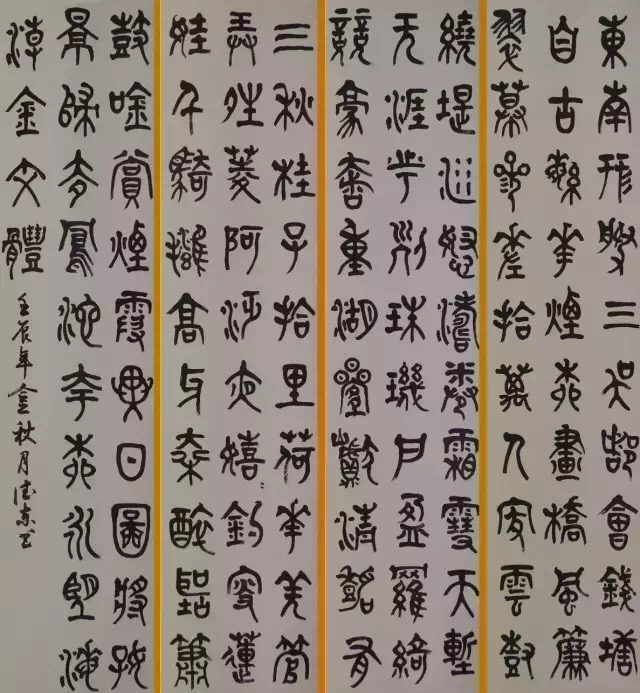 東南形勝三吳都會錢塘
自古繁華煙柳畫橋風簾
翠幕參差拾萬人家雲樹
繞堤沙怒濤卷霜雪天塹
无涯市列珠璣戶盈羅綺
競豪奢重湖疊巘清嘉有
三秋桂子拾里荷花羌管
弄晴菱歌泛夜嬉〻釣叟蓮
娃千騎擁高牙乘醉聽簫
鼓吟賞煙霞異日圖將好
景歸去鳳池夸柳永望海
潮金文體
壬辰年金秋月